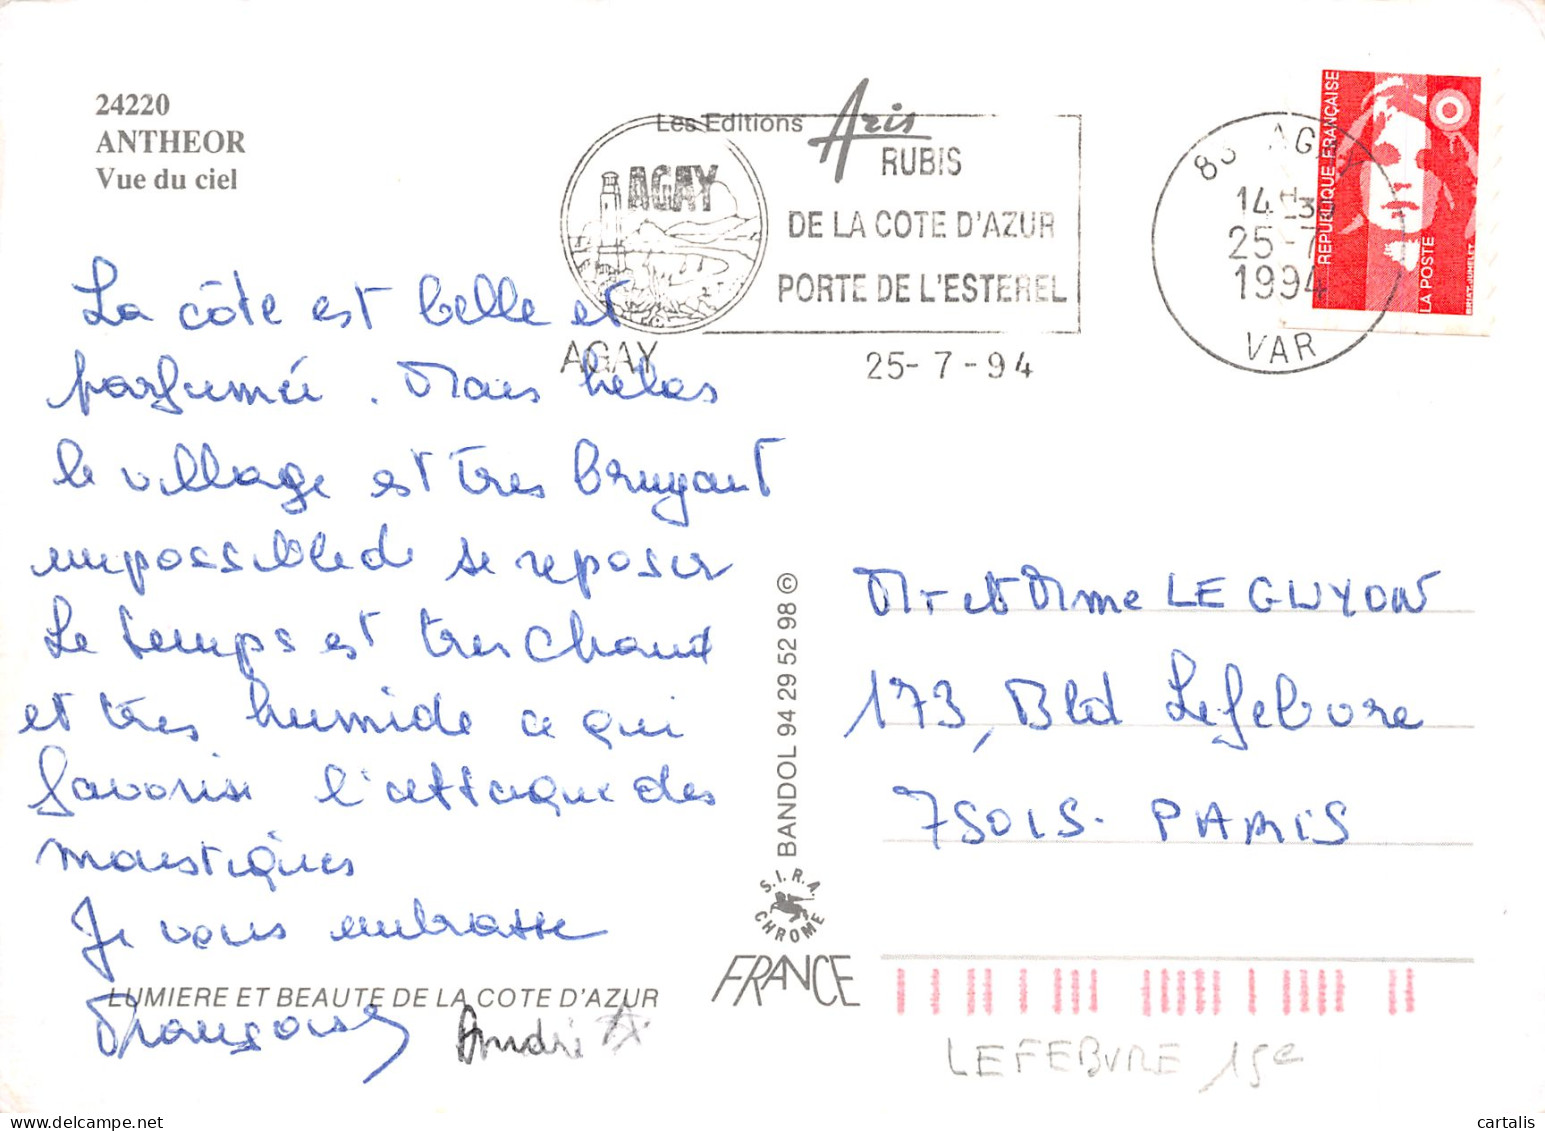 24220
ANTHEOR
Vue du ciel
Les Editions Aris
AGAY
RUBIS
DE LA COTE D'AZUR
PORTE DE L'ESTEREL
AGAY
25-7-94
83 AGAY
14H30
25-7
1994
VAR
REPUBLIQUE FRANÇAISE
LA POSTE
BRIAT-JUMELET
La côte est belle et
parfumée. Mais helas
le village est très bruyant
impossible de se reposer
Le temps est tres chaud
et très humide ce qui
favorise l'attaque des
moustiques
Je vous embrasse
Françoise
André
LUMIERE ET BEAUTE DE LA COTE D'AZUR
BANDOL 94 29 52 98 ©
S.I.R.A.
CHROME
FRANCE
Mr et Mme LE GUYON
173, Bld Lefebvre
75015. PARIS
LEFEBVRE 15e
cartalis
delcampe.net